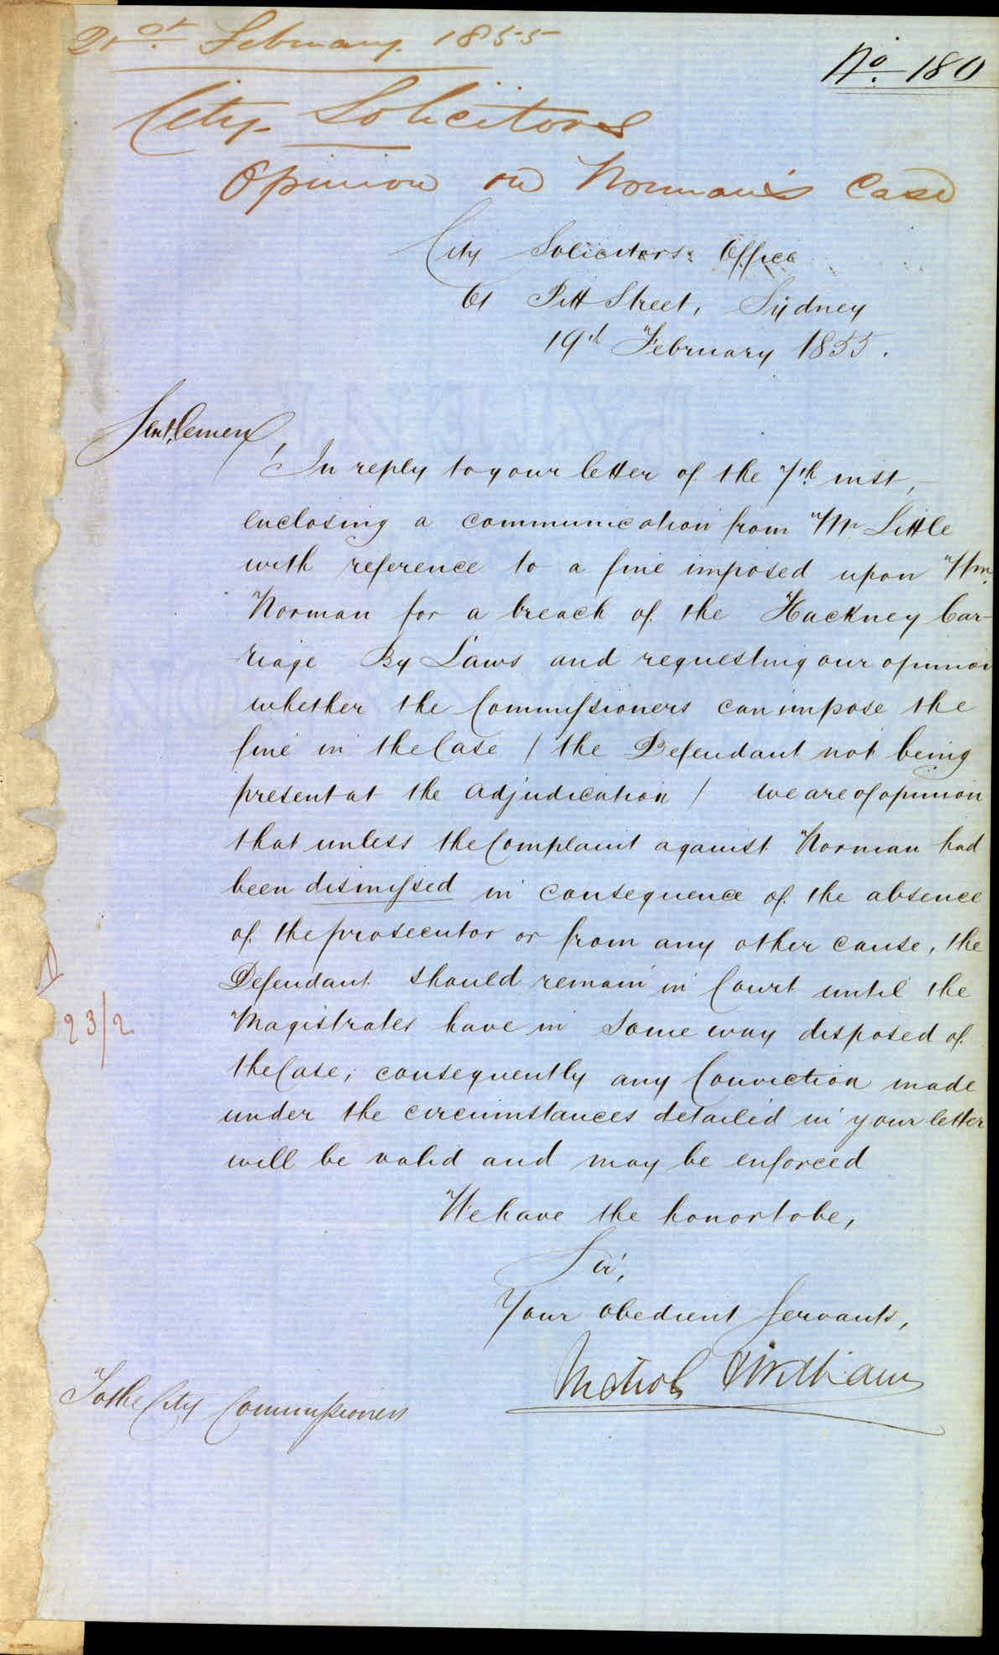 21st February 1855
No 180
City Solicitors
Opinion on Norman's Case
City Solicitors Office
61 Pitt Street, Sydney
19th February 1855.
Gentlemen,
In reply to your letter of the 7th inst,
enclosing a communication from Mr Little
with reference to a fine imposed upon Wm
Norman for a breach of the Hackney Car-
riage By Laws and requesting our opinion
whether the Commissioners can impose the
fine in the Case / the Defendant not being
present at the adjudication / we are of opinion
that unless the Complaint against Norman had
been dismissed in consequence of the absence
of the prosecutor or from any other cause, the
Defendant should remain in Court until the
Magistrates have in some way disposed of
the Case; consequently any Conviction made
under the circumstances detailed in your letter
will be valid and may be enforced
23/2
We have the honor to be,
Sir,
Your obedient Servants,
Williams
To the City Commissioners